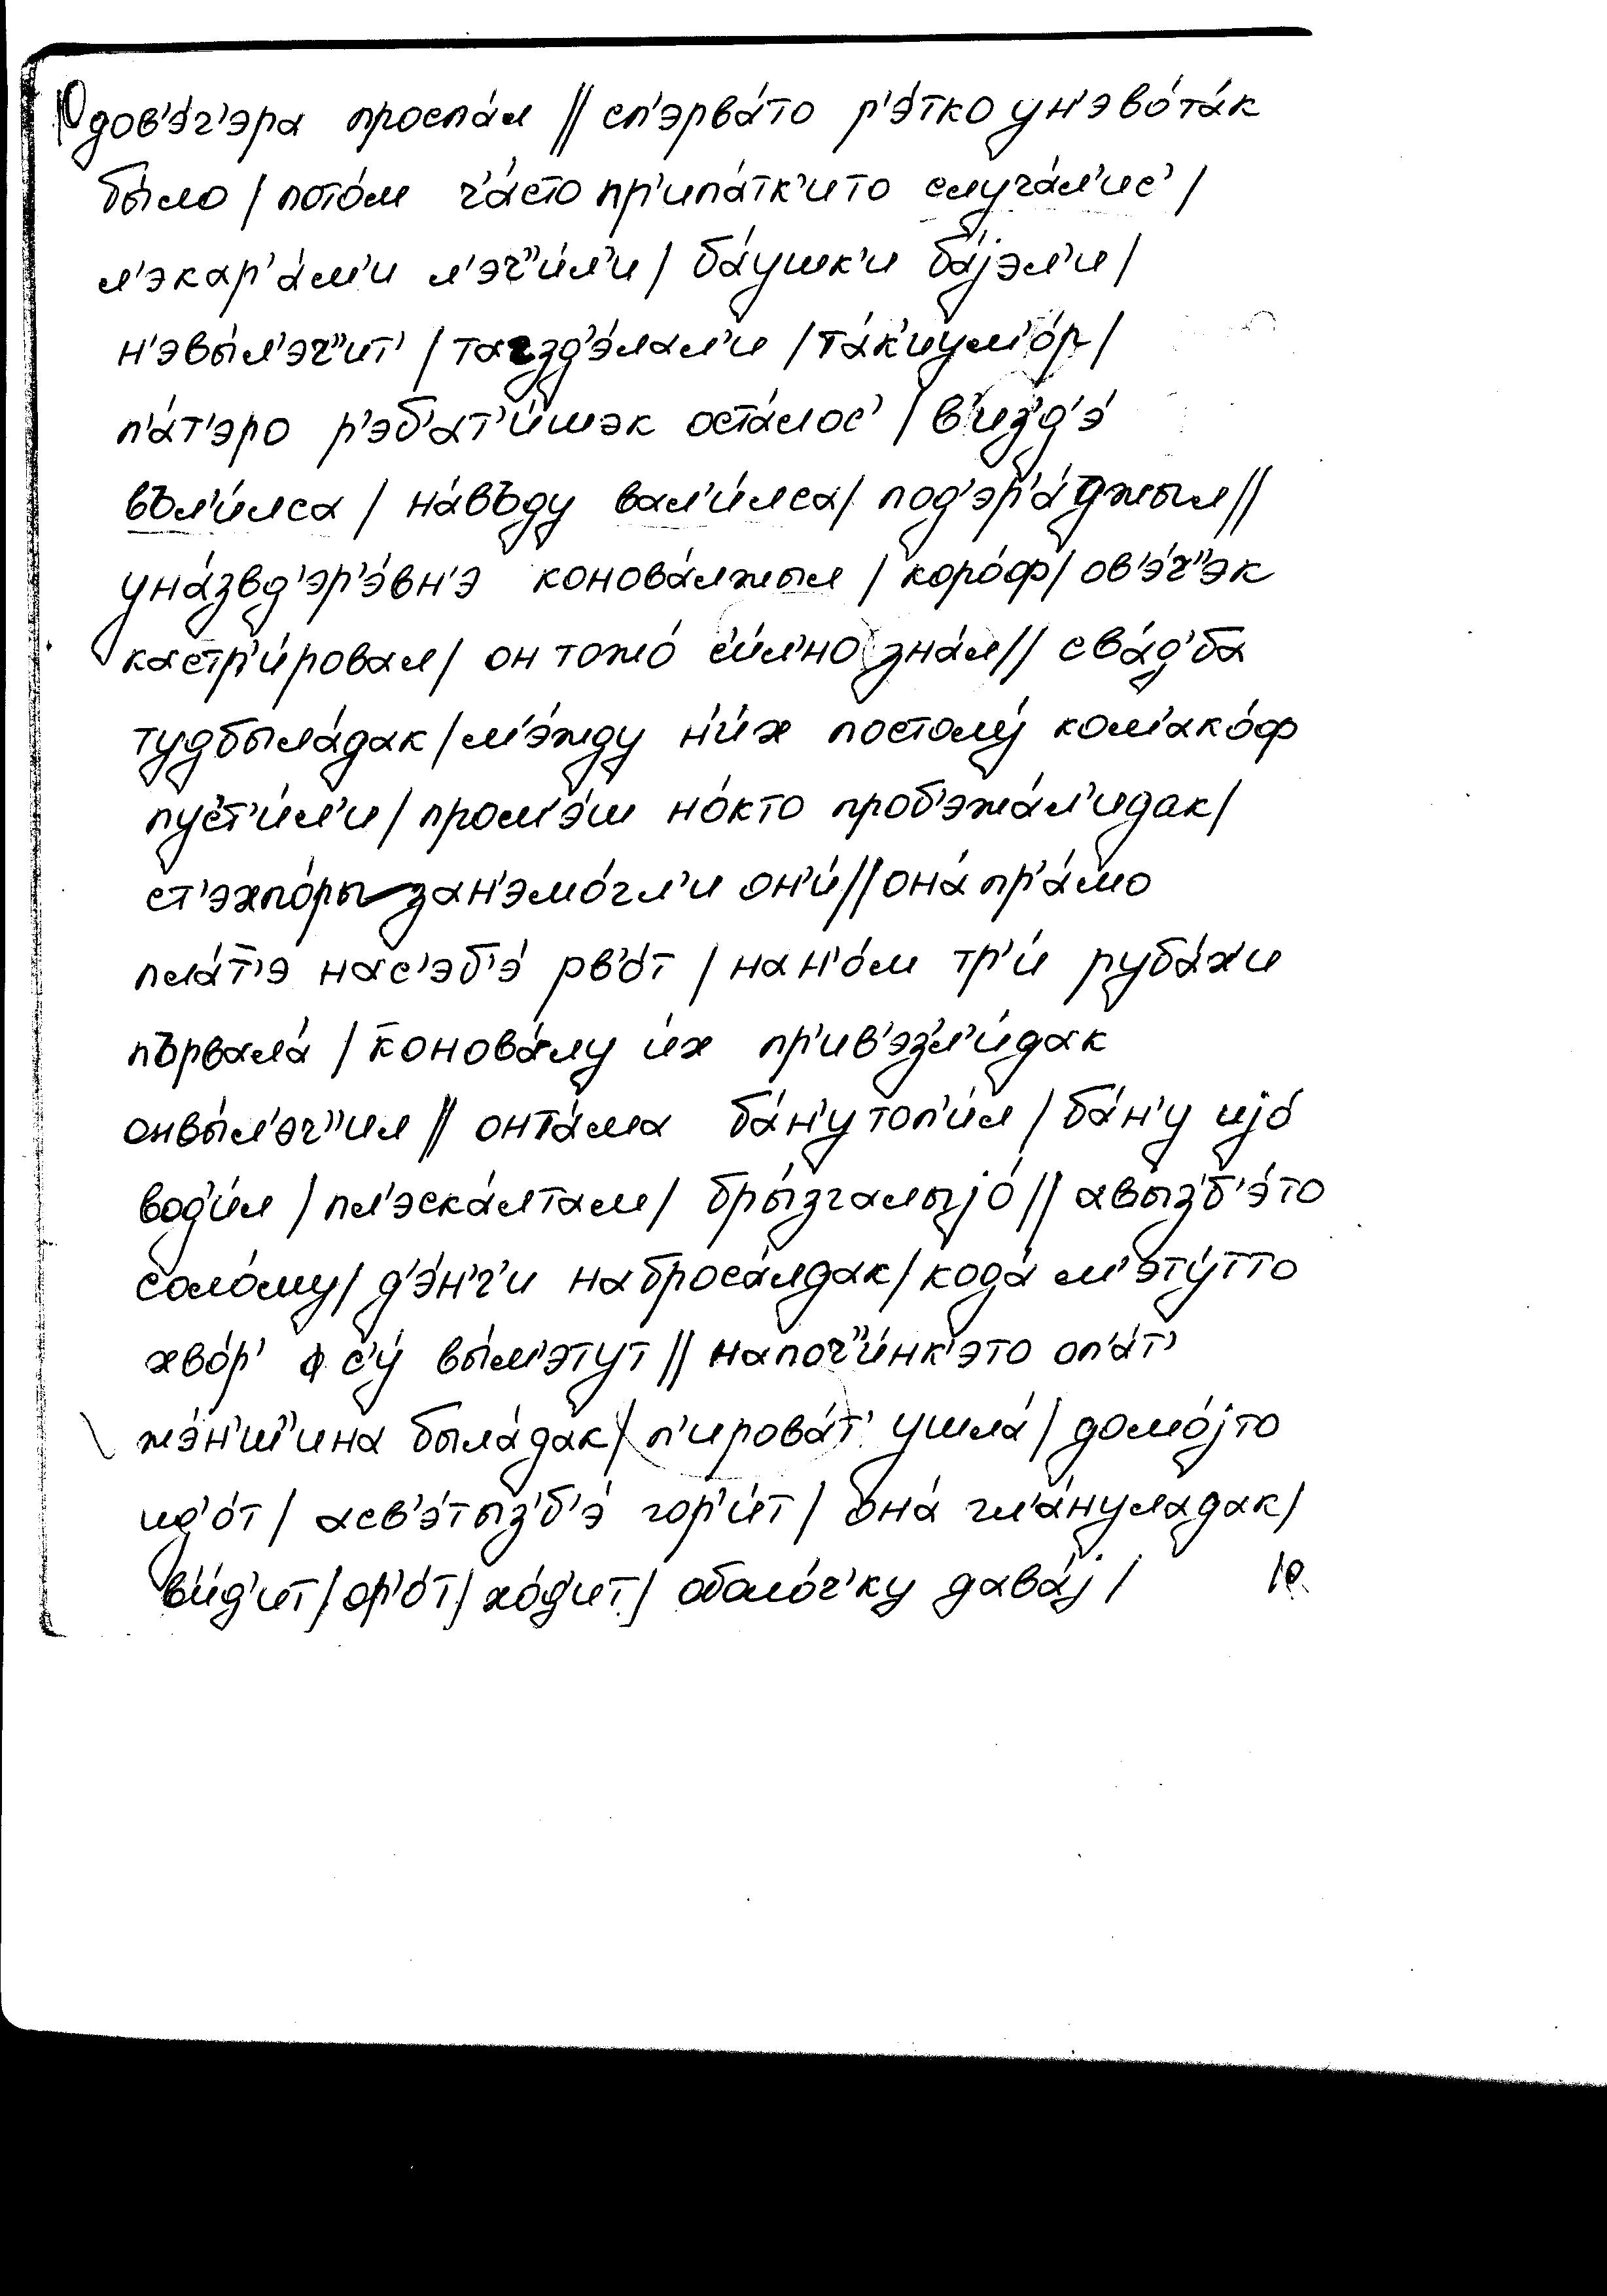 дов'э́г'эра проспа́л // сп'эрва́то р'э́тко ун'эво́та́к
бы́ло / пото́м ч'а́сто пр'ипа́тк'ито случа́л'ис' /
л'экар'а́м'и л'эч"и́л'и / ба́ушк'и ба́јэл'и /
н'эвы́л'эч"ит' / тагзд'э́лал'и / та́к'иум'о́р /
п'а́т'эро р'эб'ат'и́шэк оста́лос' / в'из'д'э́
въл'и́лса / на́въду вал'и́лса / под'эр'а́джыл //
уна́звд'эр'э́вн'э конова́лжыл / коро́ф / ов'э́ч"эк
кастр'и́ровал / он тожо́ с'и́л'но зна́л // сва́д'ба
тудбыла́дак / м'э́жду н'и́х постолу́ комако́ф
пус'т'и́л'и / пром'э́ш но́кто проб'эжа́л'идак /
ст'эхпо́ры зан'эмо́гл'и он'и́ // она́ пр'а́мо
пла́т'э нас'эб'э́ рв'о́т / нан'о́м тр'и́ руба́хи
първала́ / конова́лу и́х пр'ив'эз'л'и́дак
онвы́л'эч"ил // онта́ма ба́н'у топ'и́л / ба́н'у ијо́
вод'и́л / пл'эска́лтам / бры́згалыјо́ // авыз'б'э́то
соло́му / д'э́н'г'и наброса́лдак / кода́ м'эту́тто
хво́р' фс'у́ вы́м'этут // напоч"и́нк'это оп'а́т'
жэ́н'ш'ина была́дак / п'ирова́т' ушла́ / домо́јто
ид'о́т / асв'э́тыз'б'э́ гор'и́т / она́ гл'а́нуладак /
в'и́д'ит / ор'о́т / хо́д'ит / оболо́ч'ку дава́ј /